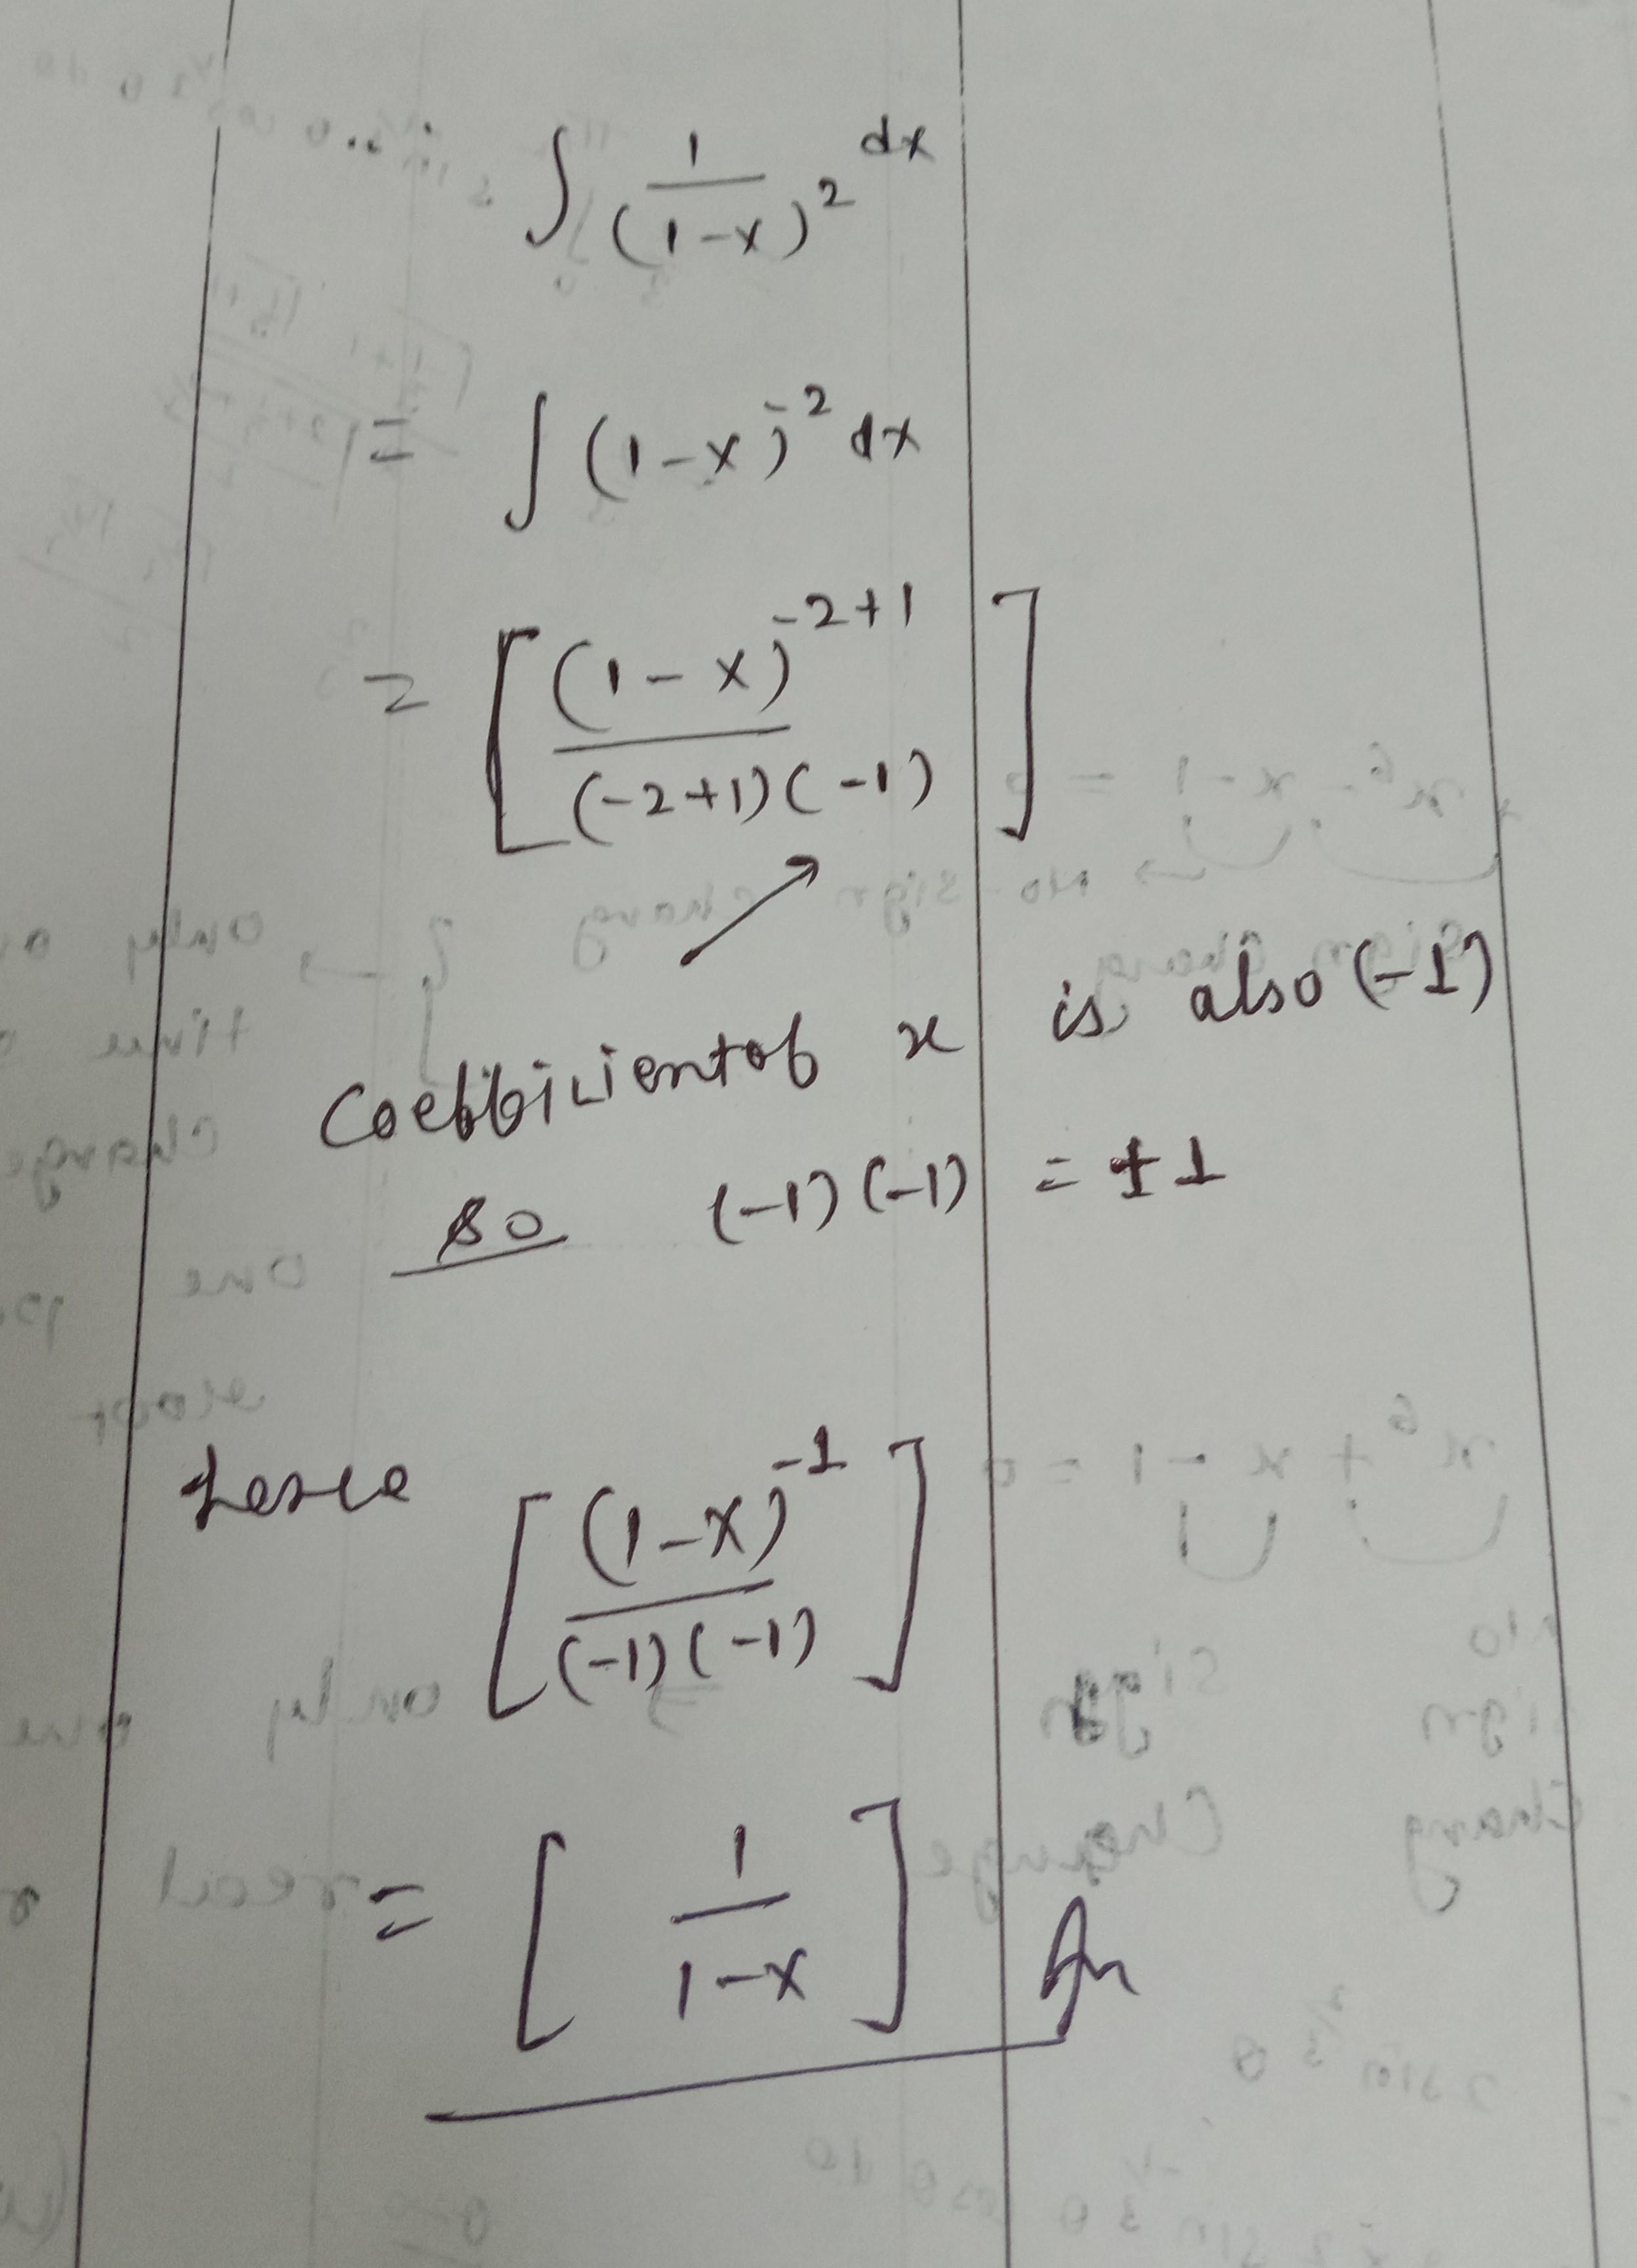 ∫ 1/(1-x)² dx
= ∫ (1-x)⁻² dx
= [ (1-x)⁻²⁺¹ / (-2+1)(-1) ]
Coefficient of x is also (-1)
so (-1)(-1) = +1
Hence [ (1-x)⁻¹ / (-1)(-1) ]
= [ 1/(1-x) ]